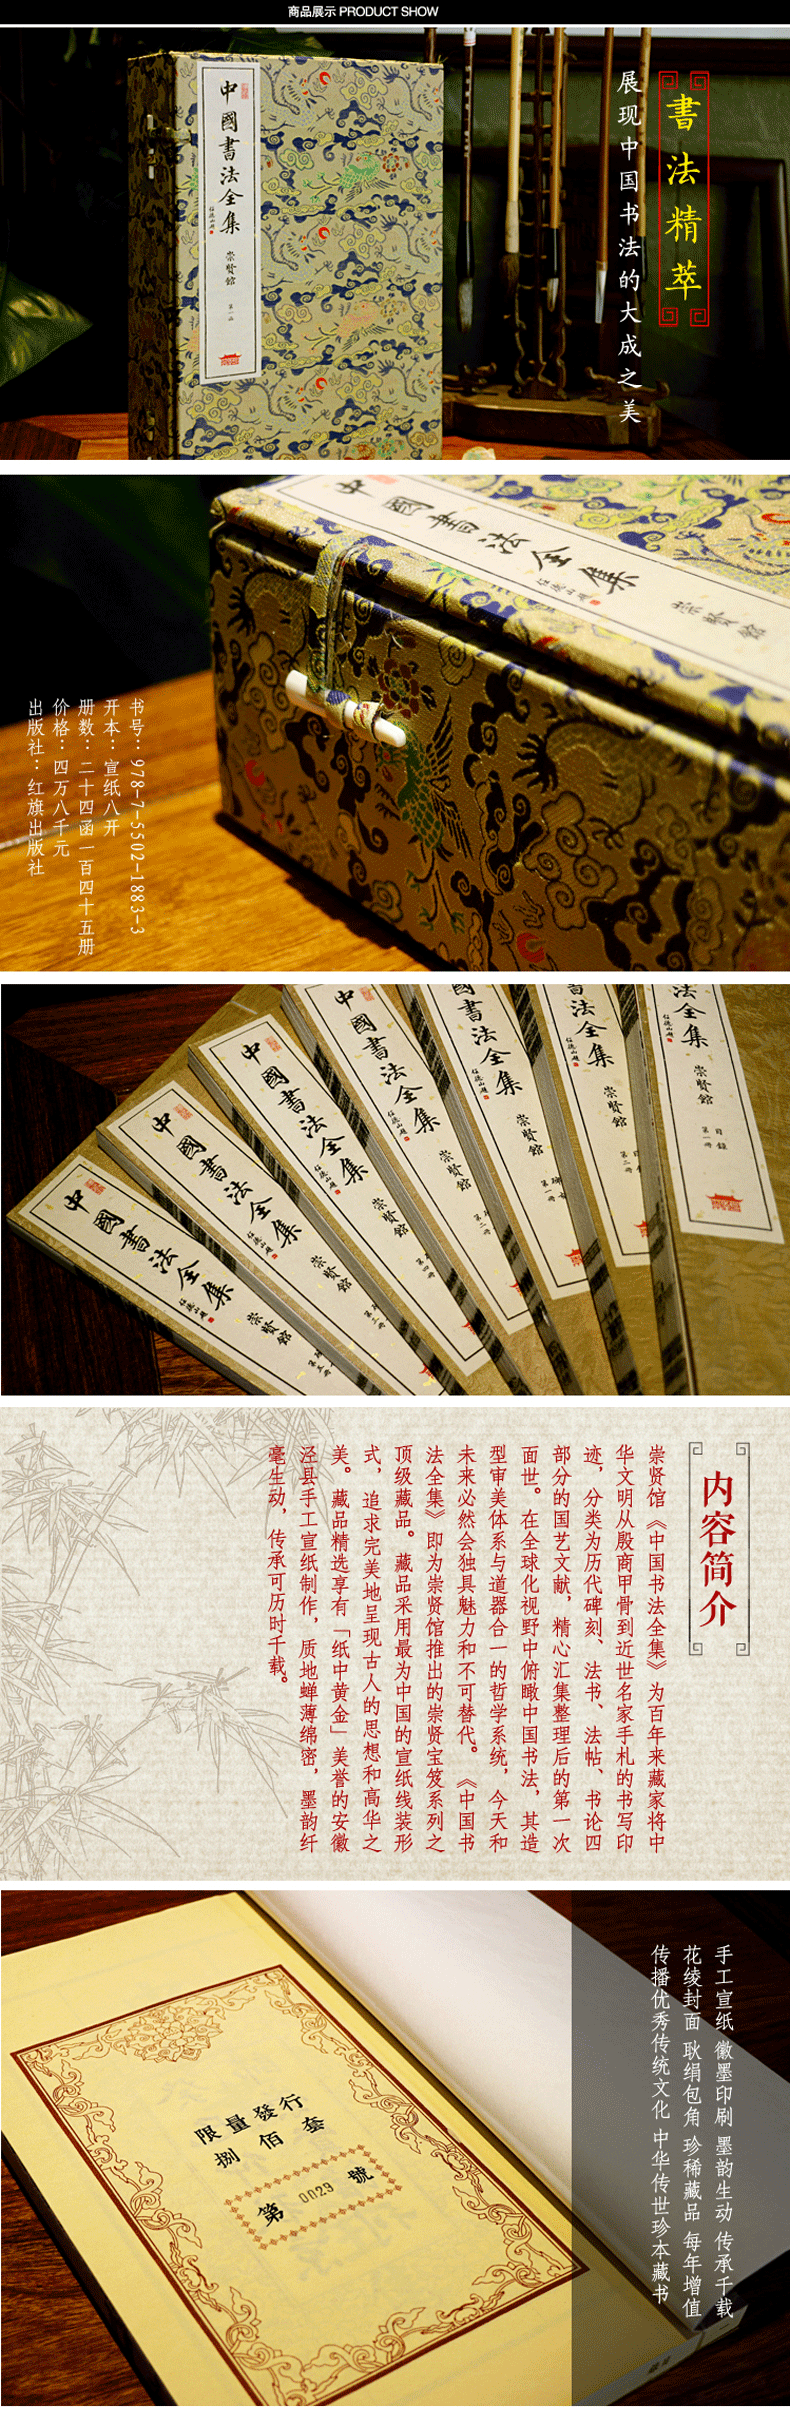 商品展示 PRODUCT SHOW
書法精萃
展现中国书法的大成之美
中國書法全集
任德山題
崇賢館
第一函
中國書法全集
任德山題
崇賢館
书号：978-7-5502-1883-3
开本：宣纸八开
册数：二十四函一百四十五册
价格：四万八千元
出版社：红旗出版社
中國書法全集
任德山題
崇賢館
中國書法全集
任德山題
崇賢館
第五册
中國書法全集
任德山題
崇賢館
第三册
中國書法全集
任德山題
崇賢館
第四册
書法全集
任德山題
崇賢館
第二册
法全集
任德山題
崇賢館
第一册
法全集
任德山題
崇賢館
目録
第二册
目録
第一册
内容简介
崇贤馆《中国书法全集》为百年来藏家将中
华文明从殷商甲骨到近世名家手札的书写印
迹，分类为历代碑刻、法书、法帖、书论四
部分的国艺文献，精心汇集整理后的第一次
面世。在全球化视野中俯瞰中国书法，其造
型审美体系与道器合一的哲学系统，今天和
未来必然会独具魅力和不可替代。《中国书
法全集》即为崇贤馆推出的崇贤宝笈系列之
顶级藏品。藏品采用最为中国的宣纸线装形
式，追求完美地呈现古人的思想和高华之
美。藏品精选享有「纸中黄金」美誉的安徽
泾县手工宣纸制作，质地蝉薄绵密，墨韵纤
毫生动，传承可历时千载。
手工宣纸 徽墨印刷 墨韵生动 传承千载
花绫封面 耿绢包角 珍稀藏品 每年增值
传播优秀传统文化 中华传世珍本藏书
限量發行
捌佰套
第 0029 號